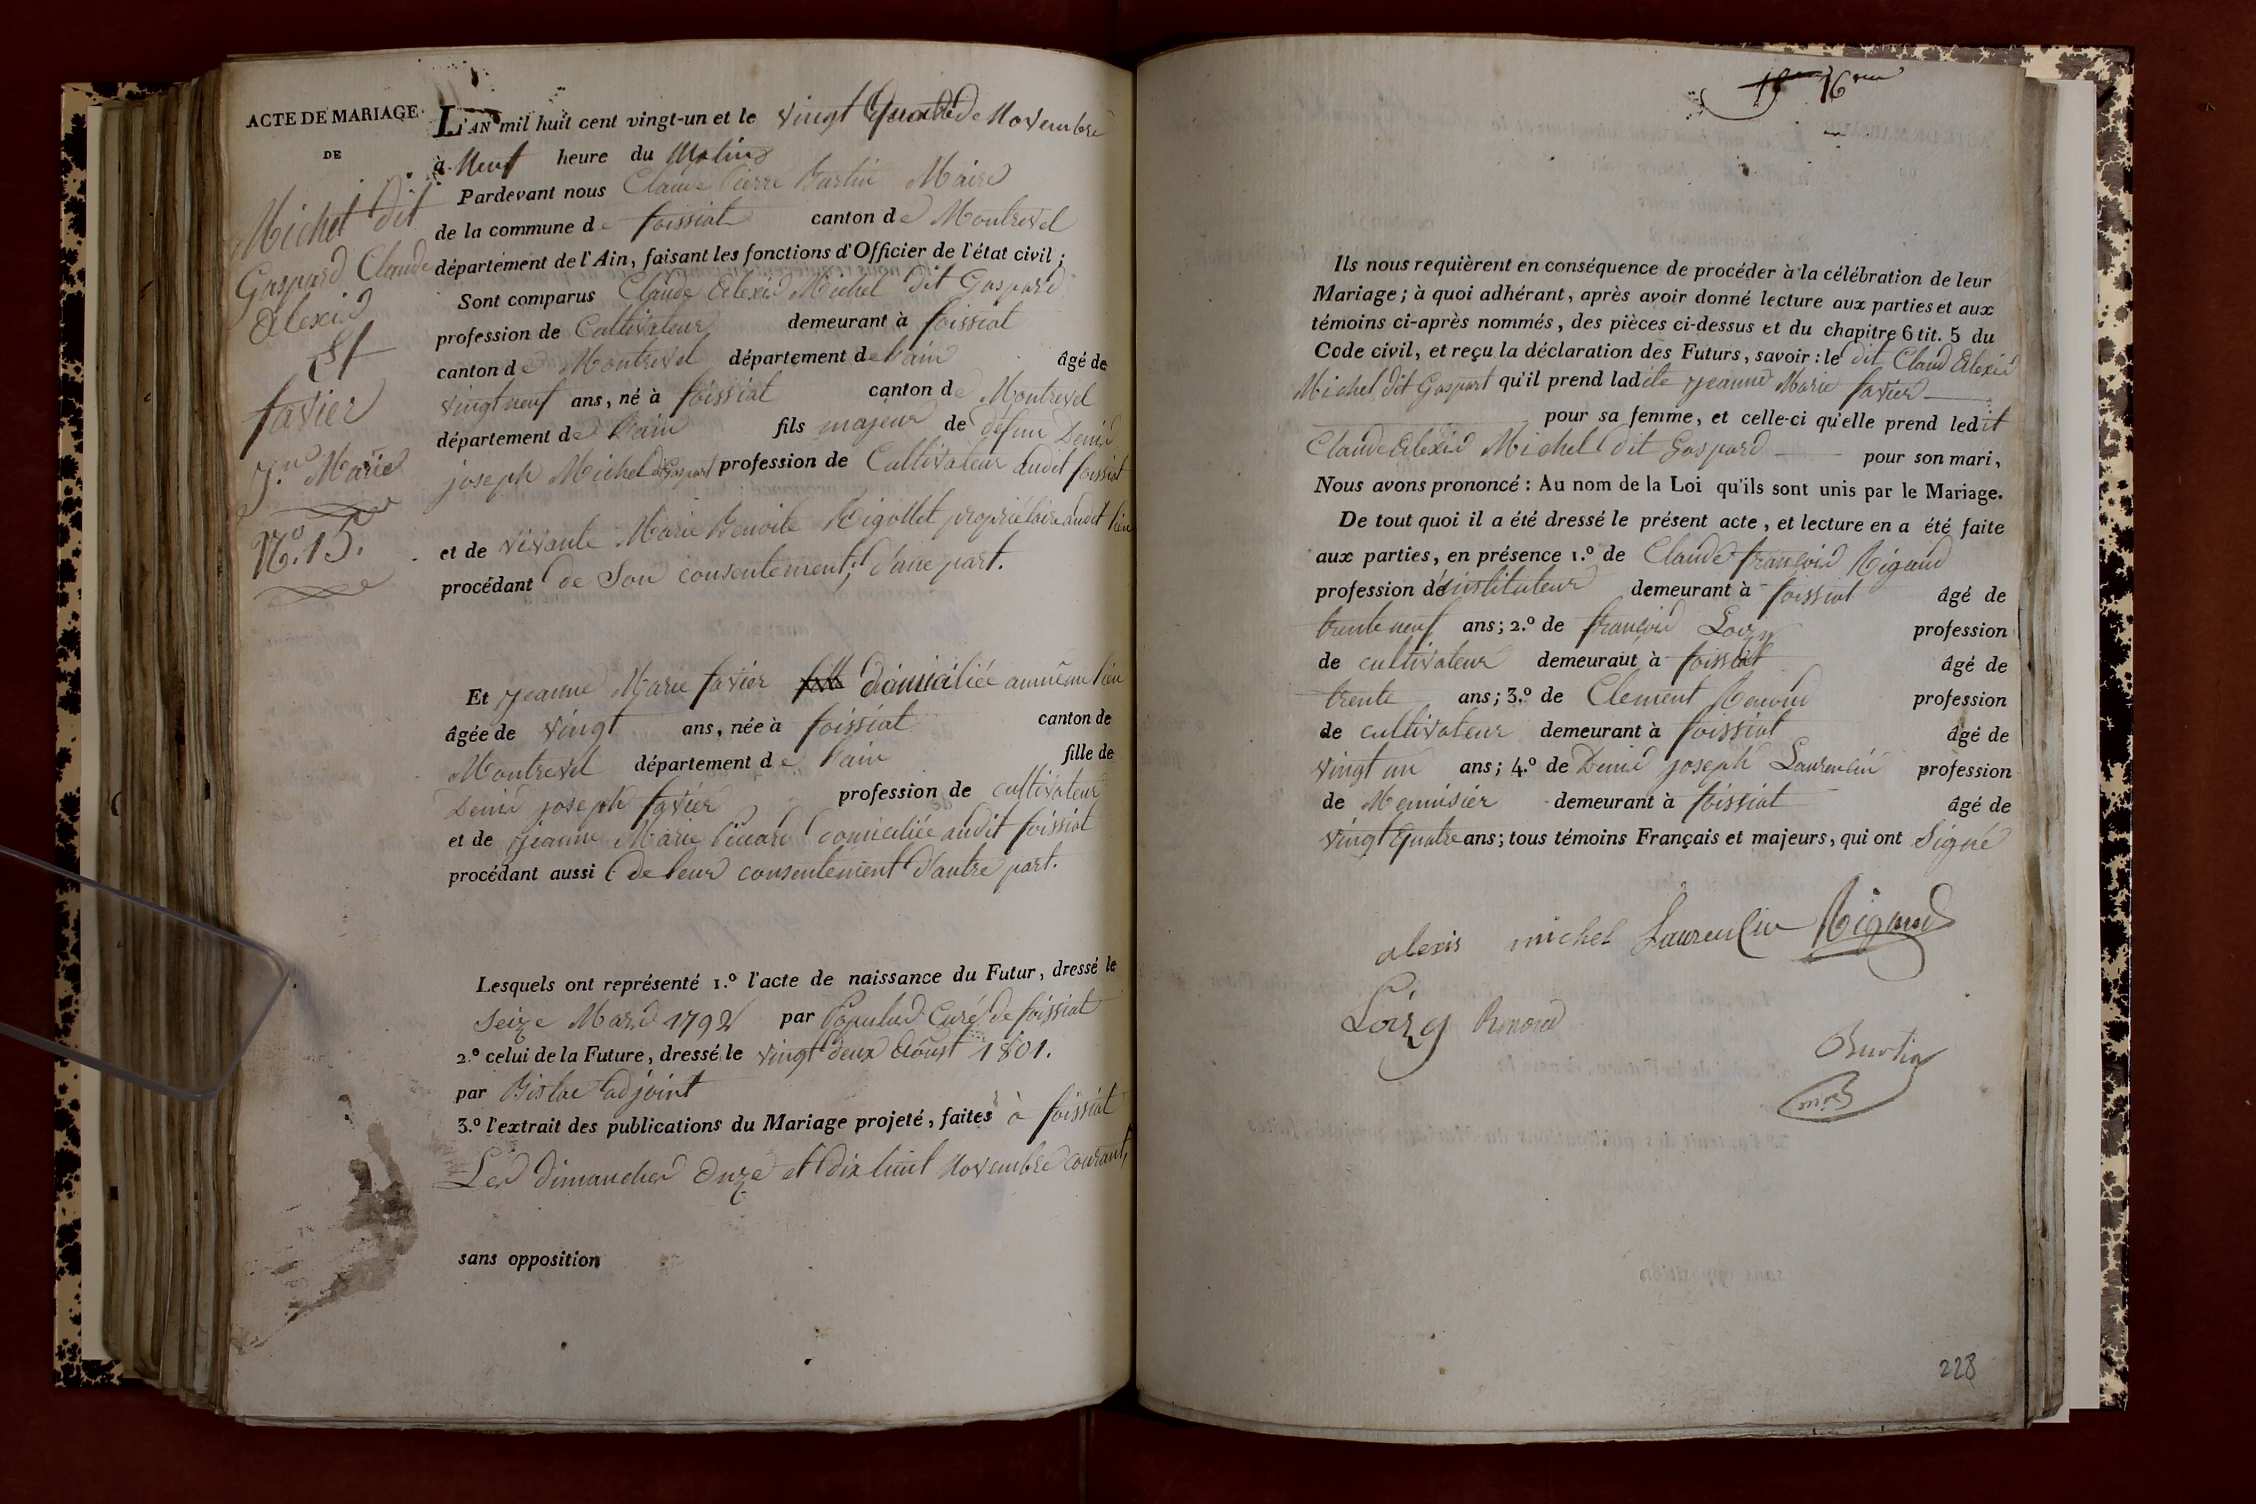 ACTE DE MARIAGE
DE
Michel dit
Gaspard Claude
Alexis
Et
favier
Jne Marie
No. 15.
L'AN mil huit cent vingt-un et le vingt quatre de Novembre
à Neuf heure du Matin
Pardevant nous Claude Pierre Burtin Maire
de la commune de foissiat canton de Montrevel
département de l'Ain, faisant les fonctions d'Officier de l'état civil;
Sont comparus Claude Alexis Michel dit Gaspard
profession de Cultivateur demeurant à foissiat
canton de Montrevel département de l'ain âgé de
vingt neuf ans, né à foissiat canton de Montrevel
département de l'ain fils majeur de défun Denis
joseph Michel dit Gaspart profession de Cultivateur audit foissiat
et de vivante Marie Benoite Rigollet propriétaire audit lieu
procédant de Son consentement, d'une part.
Et jeanne Marie favier domiciliée aumême lieu
âgée de vingt ans, née à foissiat canton de
Montrevel département de l'ain fille de
Denis joseph favier profession de cultivateur
et de jeanne Marie Piccard domiciliée audit foissiat
procédant aussi de leur consentement d'autre part.
Lesquels ont représenté 1.º l'acte de naissance du Futur, dressé le
Seize Mars 1792 par Populus Curé de foissiat
2.º celui de la Future, dressé le vingt deux Aoust 1801.
par adjoint
3.º l'extrait des publications du Mariage projeté, faites à foissiat
Les dimanches Onze et dix huit Novembre courant,
sans opposition
16me
Ils nous requièrent en conséquence de procéder à la célébration de leur
Mariage; à quoi adhérant, après avoir donné lecture aux parties et aux
témoins ci-après nommés, des pièces ci-dessus et du chapitre 6 tit. 5 du
Code civil, et reçu la déclaration des Futurs, savoir: le dit Claud Alexis
Michel dit Gaspart qu'il prend ladite jeanne Marie favier
pour sa femme, et celle-ci qu'elle prend ledit
Claude Alexis Michel dit Gaspard pour son mari,
Nous avons prononcé: Au nom de la Loi qu'ils sont unis par le Mariage.
De tout quoi il a été dressé le présent acte, et lecture en a été faite
aux parties, en présence 1.º de Claude françois Rigaud
profession d'instituteur demeurant à foissiat âgé de
trente neuf ans; 2.º de françois Loizy profession
de cultivateur demeurant à foissiat âgé de
trente ans; 3.º de Clement Renoud profession
de cultivateur demeurant à foissiat âgé de
vingt un ans; 4.º de Denis joseph Laurencin profession
de Menuisier demeurant à foissiat âgé de
vingt quatre ans; tous témoins Français et majeurs, qui ont Signé
alexis michel Laurencin Rigaud
Loizy Renoud
Burtin
mre
228